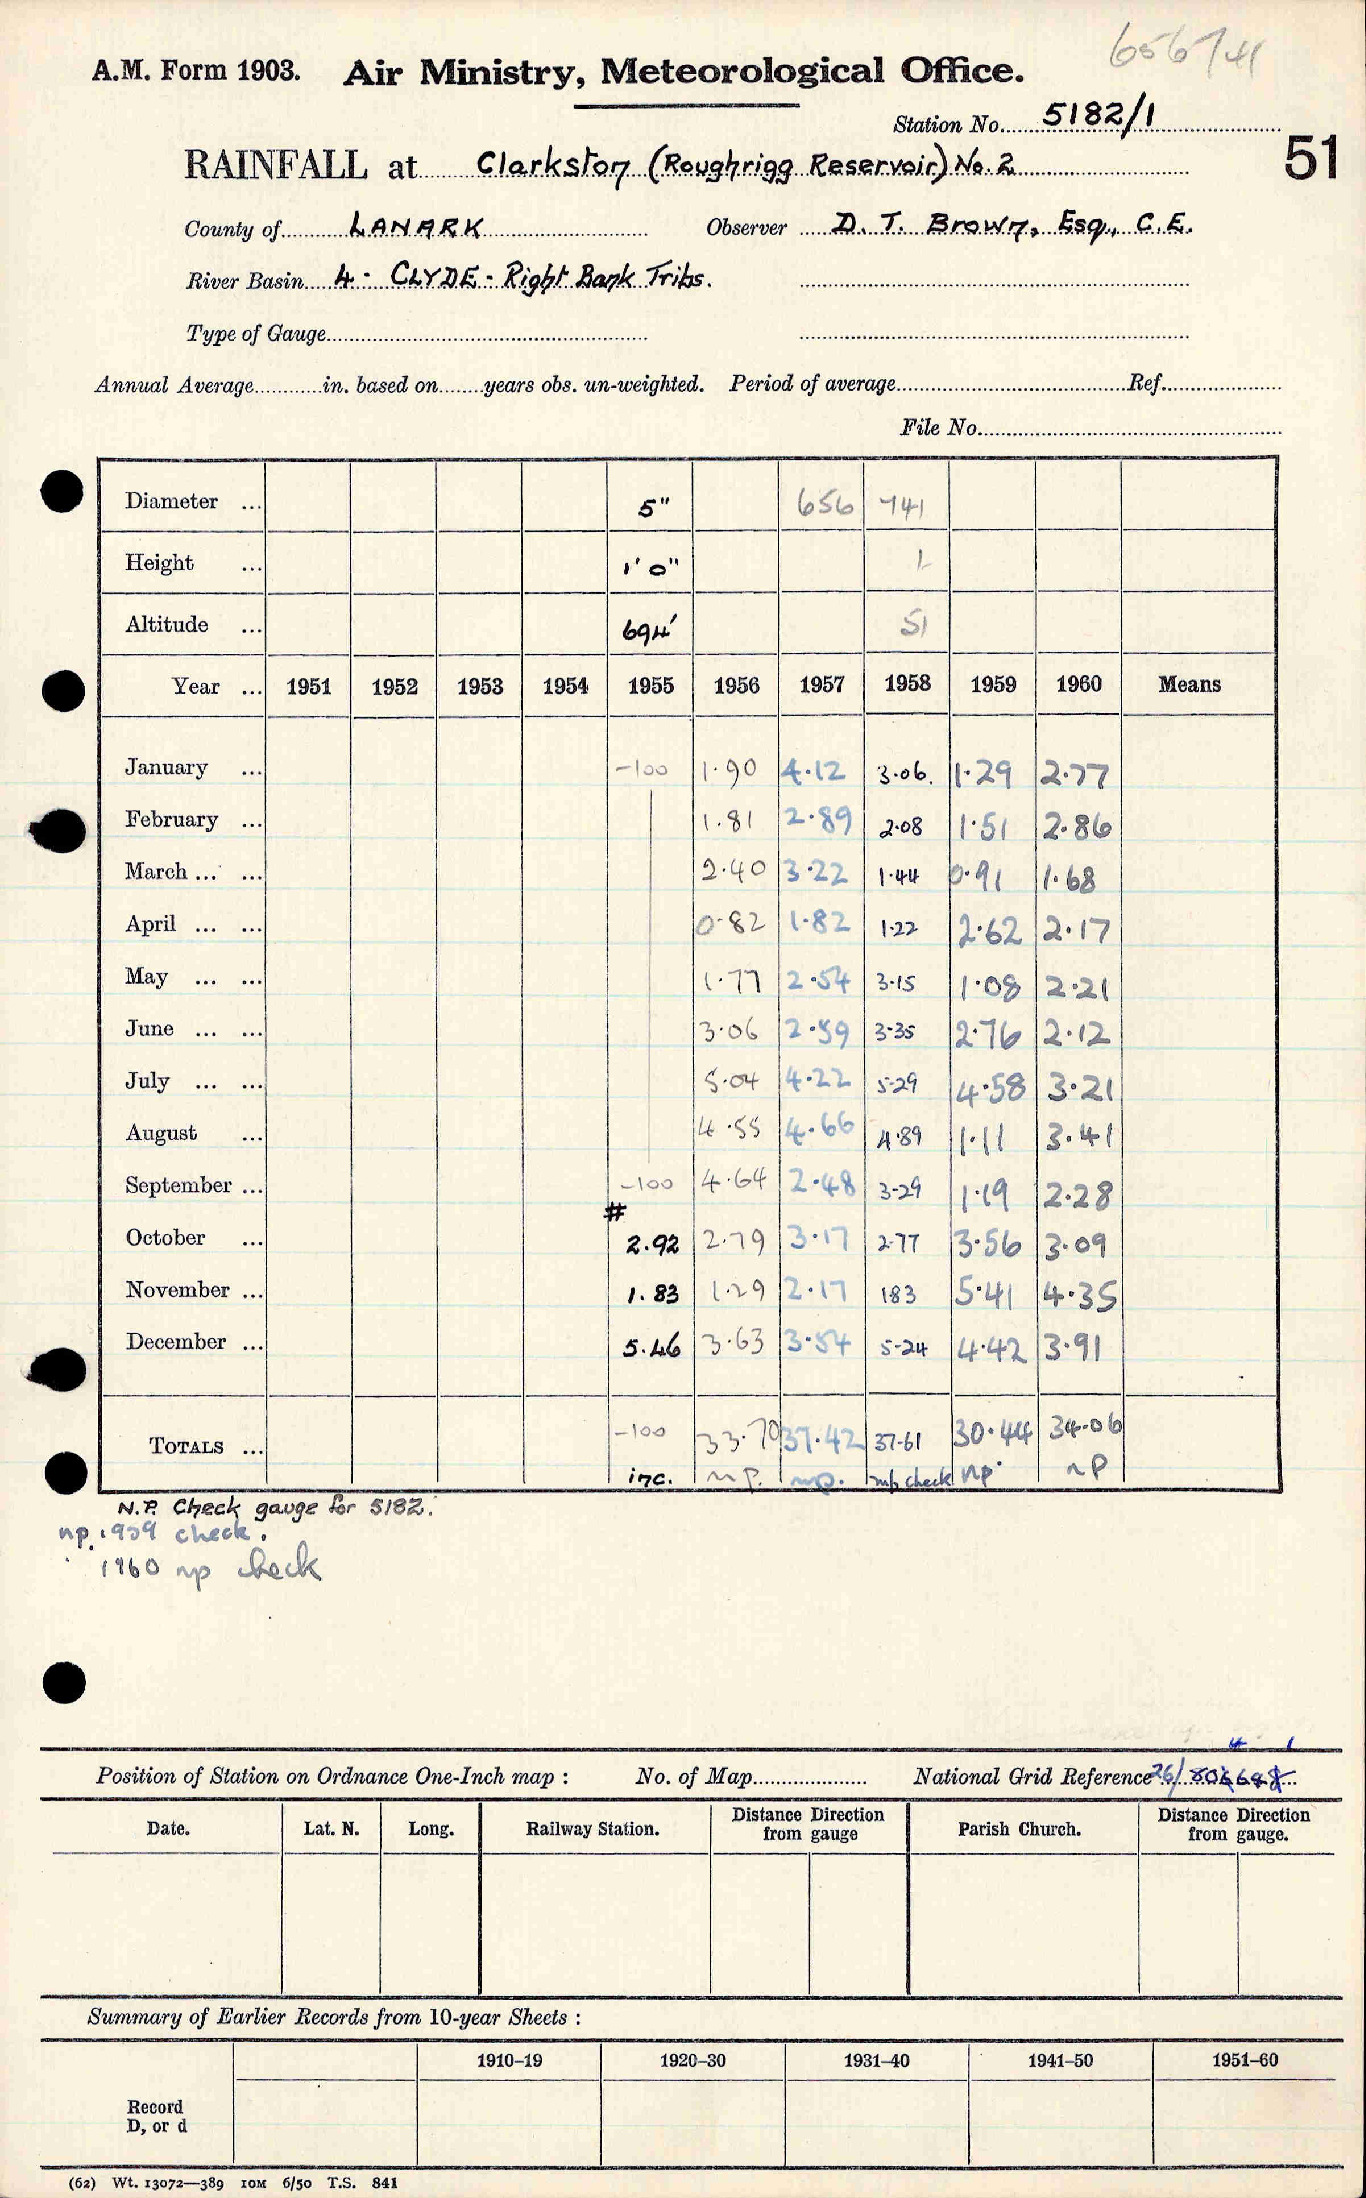 656741
A.M. Form 1903. Air Ministry, Meteorological Office.
Station No. 5182/1
51
RAINFALL at Clarkston (Roughrigg Reservoir) No. 2
County of LANARK Observer D. T. Brown, Esq., C.E.
River Basin 4 - CLYDE - Right Bank Tribs.
Type of Gauge
Annual Average in. based on years obs. un-weighted. Period of average Ref.
File No.
Diameter ... 5" 656 741
Height ... 1' 0" 1
Altitude ... 694' 51
Year ... 1951 1952 1953 1954 1955 1956 1957 1958 1959 1960 Means
January ... -100 1.90 4.12 3.06. 1.29 2.77
February ... 1.81 2.89 2.08 1.51 2.86
March ... ... 2.40 3.22 1.44 0.91 1.68
April ... ... 0.82 1.82 1.22 2.62 2.17
May ... ... 1.77 2.54 3.15 1.08 2.21
June ... ... 3.06 2.59 3.35 2.76 2.12
July ... ... 5.04 4.22 5.29 4.58 3.21
August ... 4.55 4.66 4.89 1.11 3.41
September ... -100 4.64 2.48 3.29 1.19 2.28
#
October ... 2.92 2.79 3.17 2.77 3.56 3.09
November ... 1.83 1.29 2.17 1.83 5.41 4.35
December ... 5.46 3.63 3.54 5.24 4.42 3.91
TOTALS ... -100 33.70 37.42 37.61 30.44 34.06
inc. n.p. np. n/p check np. nP
N.P. Check gauge for 5182.
np. 1959 check.
1960 np check
Position of Station on Ordnance One-Inch map : No. of Map National Grid Reference 26/
Date. Lat. N. Long. Railway Station. Distance Direction from gauge Parish Church. Distance Direction from gauge.
Summary of Earlier Records from 10-year Sheets :
1910-19 1920-30 1931-40 1941-50 1951-60
Record
D, or d
(62) Wt. 13072—389 10M 6/50 T.S. 841